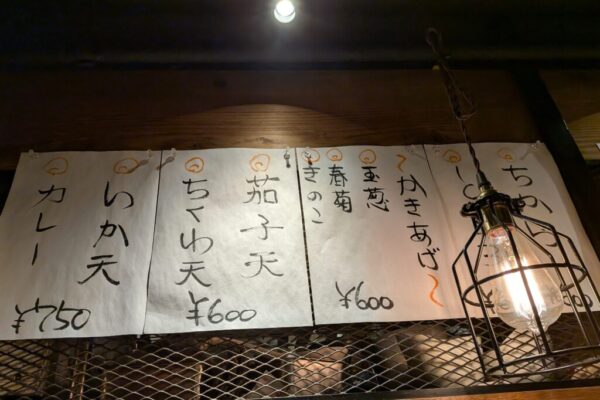 ちから
〜かきあげ〜
玉葱
春菊
きのこ
¥600
茄子天
ちくわ天
¥600
いか天
カレー
¥750